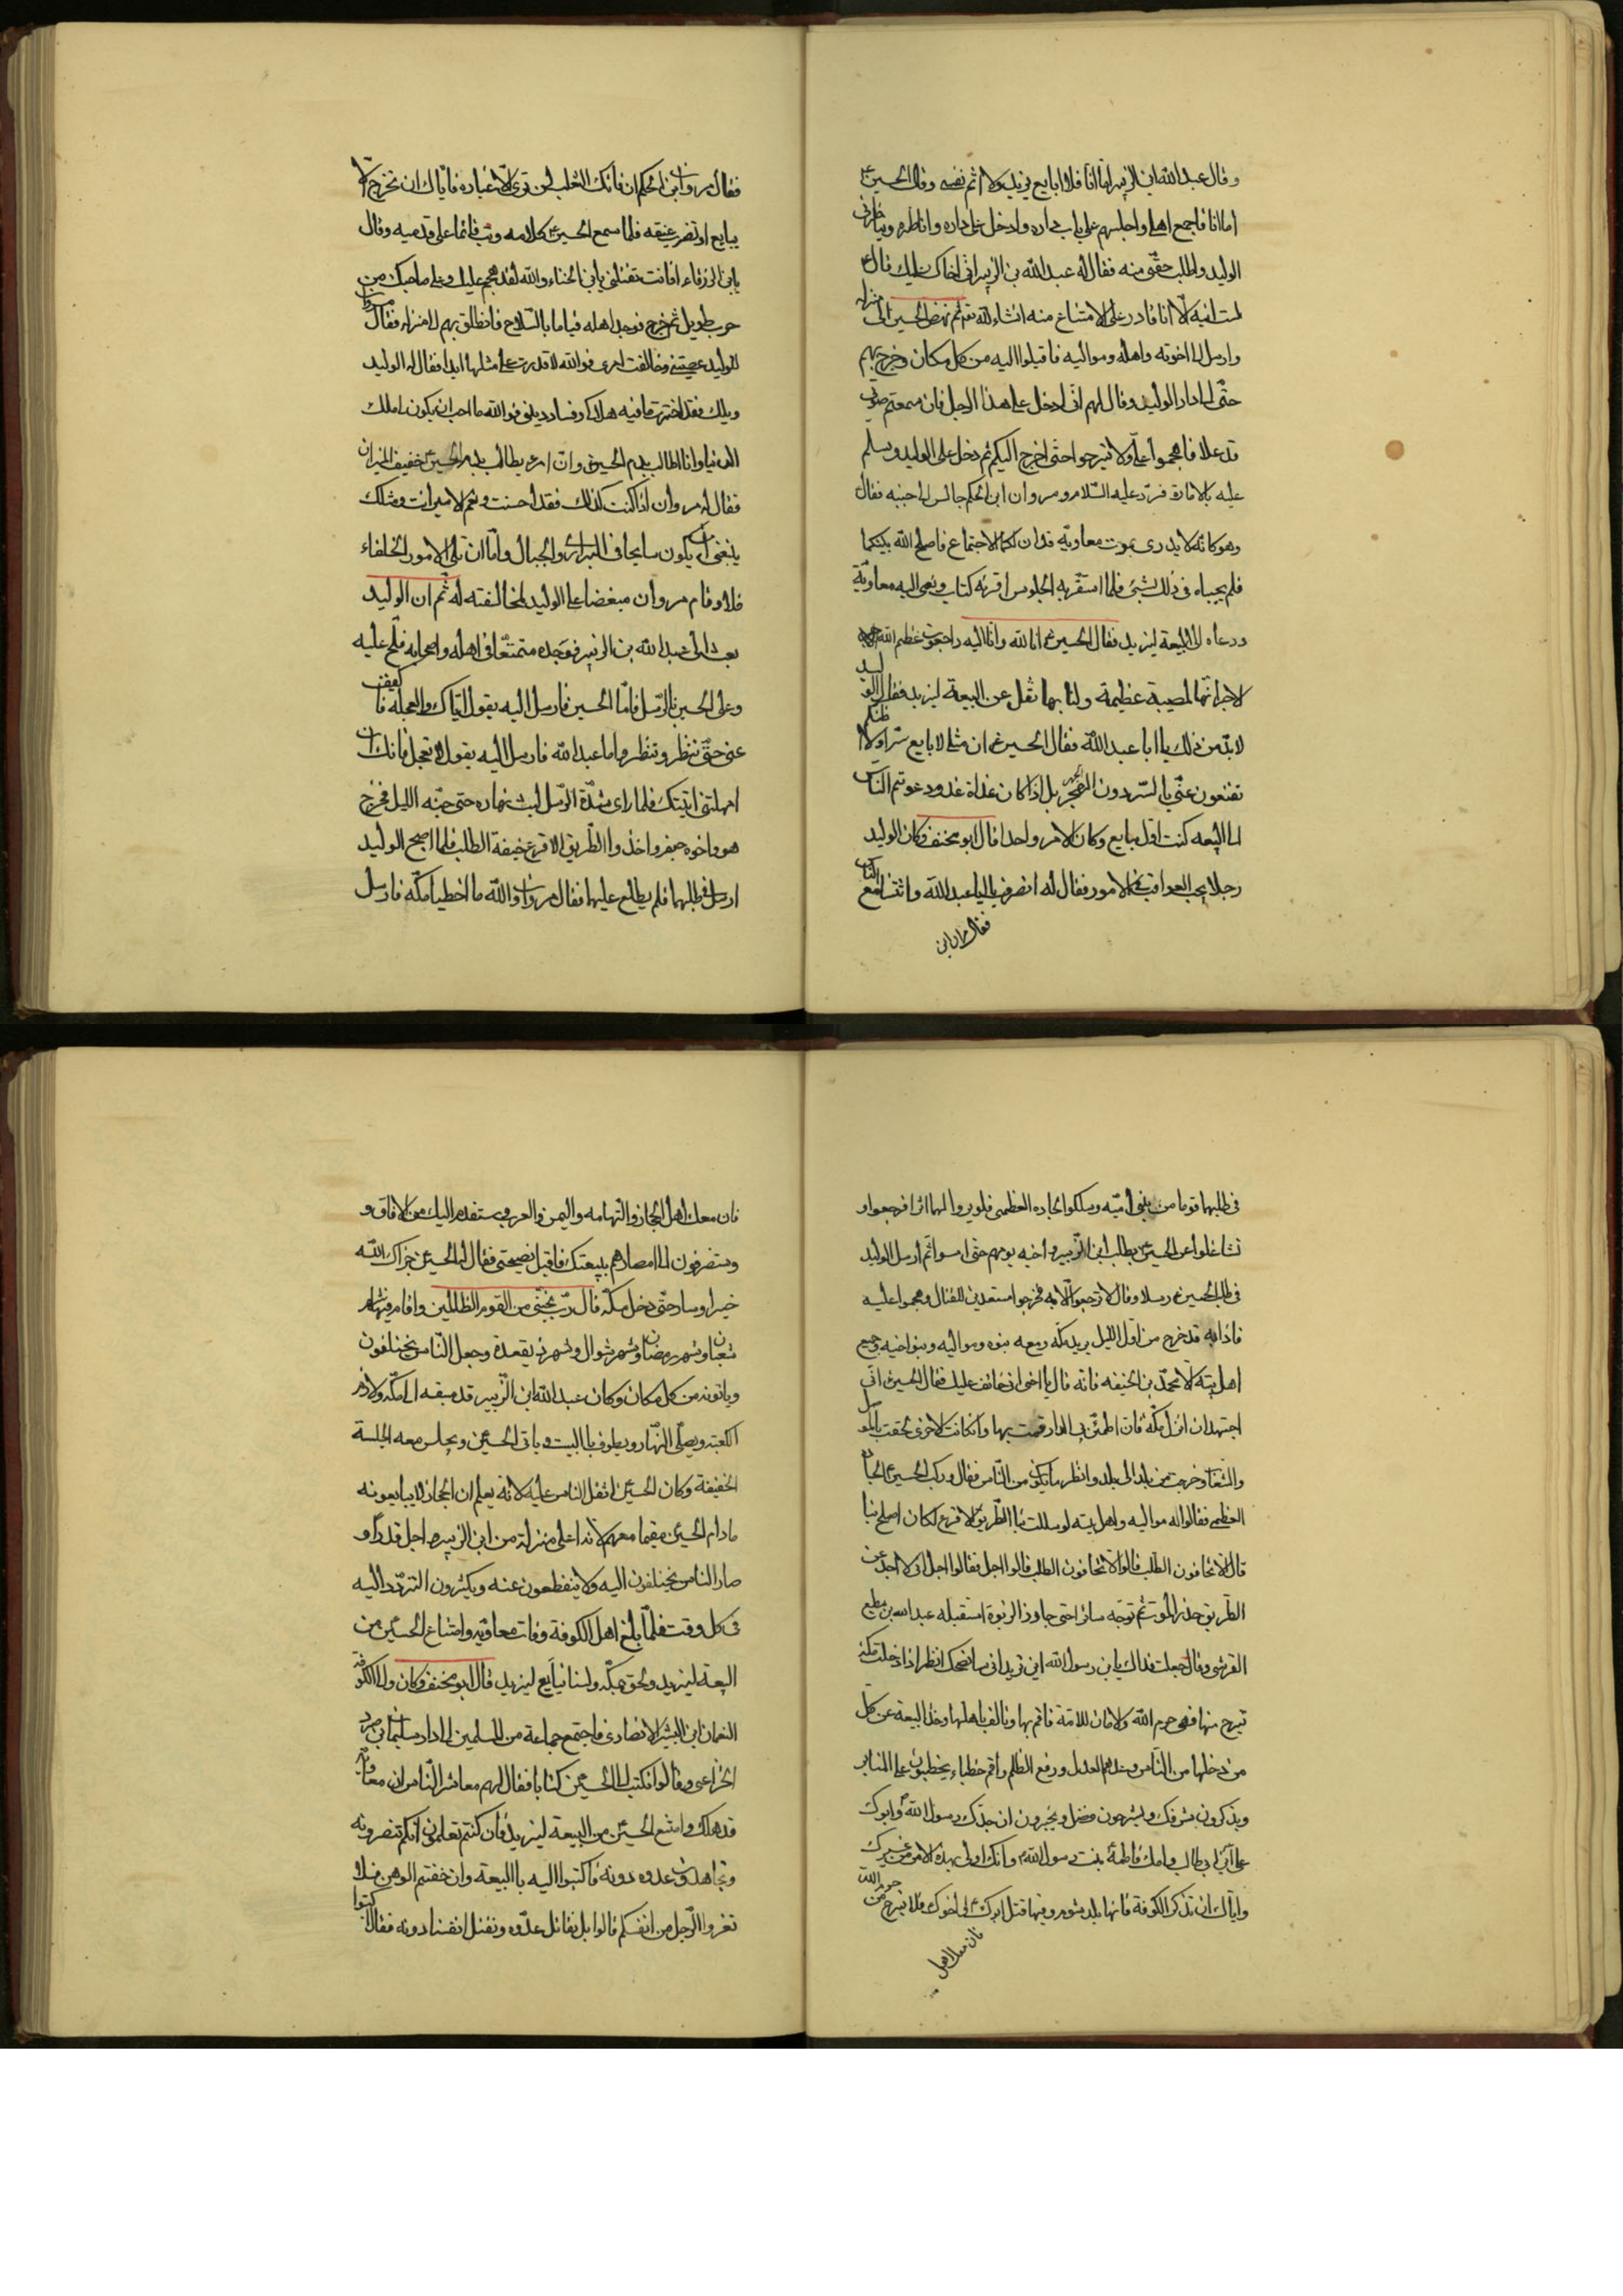 وقال عبد الله ابن الزبير اما انا فلا ابايع يزيد ولا اثم نفسه وقال الحسين ع
اما انا فاجمع اهلي واجلسهم على باب داره وادخل على داره واناظره ويناظرني
الوليد واطلب حقّي منه فقال له عبد الله بن الزبير اني اخاف عليك قال
لست اتيه الّا انا قادر على الامتناع منه انشاء الله تعم ثم نهض الحسين الى منزله
وارسل الى اخوته واهله ومواليه فاقبلوا اليه من كل مكان وخرج بهم
حتّى اتى دار الوليد وقال لهم انّى ادخل على هذا الرجل فان سمعتم صوتي
قد علا فاهجموا علىّ ولا تبرحوا حتى اخرج اليكم ثم دخل على الوليد وسلم
عليه بالامارة فردّ عليه السّلام ومروان ابن الحكم جالس الى جنبه فقال
وهو كانه لا يدرى بموت معاوية قد ان لكما الاجتماع فاصلح الله بينكما
فلم يجيباه فى ذلك بشئ فلما استقر به الجلوس اقرئه كتاب ونعى اليه معاويّة
ودعاه الى البيعة ليزيد فقال الحسين ع انا لله وانّا اليه راجعون عظم الله
الاجر انّها لمصيبة عظيمة ولنا بها ثقل عن البيعة ليزيد فقال الوليد
لابدّ من ذلك يا ابا عبد الله فقال الحسين ع ان مثلى لا يبايع سرّا ولا اظنكم
تقنعون عنّى بالسّر دون الجهر بل اذا كان غداة غد ودعوتم الناس
الى البيعه كنت اوّل مبايع وكان الامر واحدا قال ابو مخنف وكان الوليد
رجلا يحب العواقب فى الامور فقال له انصرف يا ابا عبد الله واتنا مع الناس
فقال مروان ابن
فقال مروان ابن الحكم ان فاتك الثعلب لن ترى الّا غباره فايّاك ان تخرج الا
يبايع او تضرب عنقه فلما سمع الحسين ع كلامه وثب قائما على قدميه وقال
يابن الزرقاء افانت تقتلنى يابن الخناء والله لقد هجم عليك وعلى صاحبك من
حرب طويل ثم خرج فوجد اهله قياما بالسّلاح فانطلق بهم الى منزله فقال مروان
للوليد عصيتنى وخالفت امرى فوالله لا قدرت على مثلها ابدا فقال له الوليد
ويلك فقد اخترت ما فيه هلاك وفساد دينى فوالله ما احب ان يكون املك
الدنيا وانا الطالب بدم الحسين وانّ امرء يطالب بدم الحسين خفيف الميزان
فقال له مروان اذا كنت كذلك فقد احسنت ونعم الامير انت ومثلك
ينبغى ان يكون سايحا فى البرارى والجبال وامّا ان تلى الامور الخلفاء
فلا وقام مروان مبغضا على الوليد لمخالفته له ثم ان الوليد
بعث الى عبد الله بن الزبير فوجده متمنّعا فى اهله واصحابه فلح عليه
وعلى الحسين بالرّسل فامّا الحسين فارسل اليه يقول ايّاك والعجلة فاكفف
عنى حتّى ننظر وتنظر واما عبد الله فارسل اليه يقول لا تعجل فانك ان
امهلتنى اتيتك فلما راى شدّة الرّسل لبث نهاره حتى جنّه الليل فخرج
هو واخوه جعفر واخذوا الطّريق الاقرع خيفة الطلب فلما اصبح الوليد
ارسل فى طلبهما فلم يطلع عليهما فقال مروان والله ما اخطيا مكّه فارسل
فى طلبهما قوما من بنى اميّه وسلكوا الجاده العظمى فلم يروا لهما اثرا فرجعوا و
تشاغلوا عن الحسين بطلب ابن الزّبير واخيه يومهم حتى امسوا ثم ارسل الوليد
فى طلب الحسين ع رسلا وقال لا ترجعوا الّا به فخرجوا مستعدين للقتال وهجموا عليه
فاذا به قد خرج من اوّل الليل يريد مكّه ومعه بنوه ومواليه وبنو اخيه وجميع
اهل بيته الّا محمّد بن الحنيفه فانّه قال يا اخى انى خائف عليك فقال الحسين انّى
اجتهد ان انزل مكّة فان اطمئن بى الدار قمت بها وان كانت الاخرى لحقت بالرمل
والشعاب وخرجت من بلد الى بلد وانظر ما يكون من النّاس فقال وركب الحسين ع الجادّه
العظمى فقالوا له مواليه واهل بيته لو سلكت بنا الطّريق الاقرع لكان اصلح بنا
قال الا تخافون الطلب قالوا تخافون الطلب قالوا اجل فقالوا اجل انى لا احيد عن
الطّريق حذر الموت ثم توجّه سائرا حتى جاوز الربوة استقبله عبد الله بن مطيع
القرشى وقال جعلت فداك يابن رسول الله اين تريد انى ساانصحك انظر اذا دخلت مكّة
تبرح منها فهى حرم الله والامان للامّة فاقم بها وتالف باهلها وخذ البيعة عن كل
من دخلها من النّاس وعدهم العدل ورفع الظلم واقم خطباء يخطبون على المنابر
ويذكرون بشرفك ويشرحون فضل ويخبرون ان جدّك رسول الله ص وابوك
على ابن ابى طالب وامك فاطمة بنت رسول الله وانك اولى بهذه الامر من غيرك
وايّاك ان تذكر الكوفة فانها بلد مشوم وفيها قتل ابوك ع لى اخوك فلا تبرح من حرم الله
فان معك اهل
فان معك اهل الحجاز والتهامه واليمن والعرب وستقدم اليك من الافاق و
وينصرفون الى امصارهم ببيعتك فاقبل نصيحتى فقال له الحسين جزاك الله
خيرا وساد حتّى دخل مكّه قال ربّ نجّنى من القوم الظالمين واقام فيها شهر
شعبان وشهر رمضان وشهر شوال وشهر ذيقعدة وجعل النّاس يختلفون
وياتونه من كل مكان وكان عبد الله ابن الزّبير قد سبقه الى مكّه ولازم
الكعبة ويصلّى النّهار ويطوف بالبيت وياتى الحسين ويجلس معه الجلسة
الخفيفة وكان الحسين اثقل الناس عليه لانّه يعلم ان الحجاز لا يبايعونه
مادام الحسين مقيما معهم لانه اعلى منزلة من ابن الزبير واجل قدرا و
صار الناس يختلفون اليه ولا ينقطعون عنه ويكثرون التردّد اليه
فى كل وقت فلمّا بلغ اهل الكوفة وفات معاويه وامتناع الحسين من
البيعة ليزيد ولحق بمكّه ولسنا نبايع ليزيد قال ابو مخنف وكان والى الكوفة
النعمان ابن البشير الانصارى فاجتمع جماعة من المسلمين الى دار سليمان ابن صرد
الخزاعى وقالوا نكتب الى الحسين كتابا فقال لهم معاشر النّاس ان معاويّه
قد هلك وامتنع الحسين من البيعة ليزيد فان كنتم تعلمون انّكم تنصرونه
وتجاهدون عدوه دونه فاكتبوا اليه بالبيعة وان خفتم الوهن فلا
تغروا الرّجل من انفسكم قالوا بل نقاتل عدّوه ونقتل انفسنا دونه فقال اكتبوا